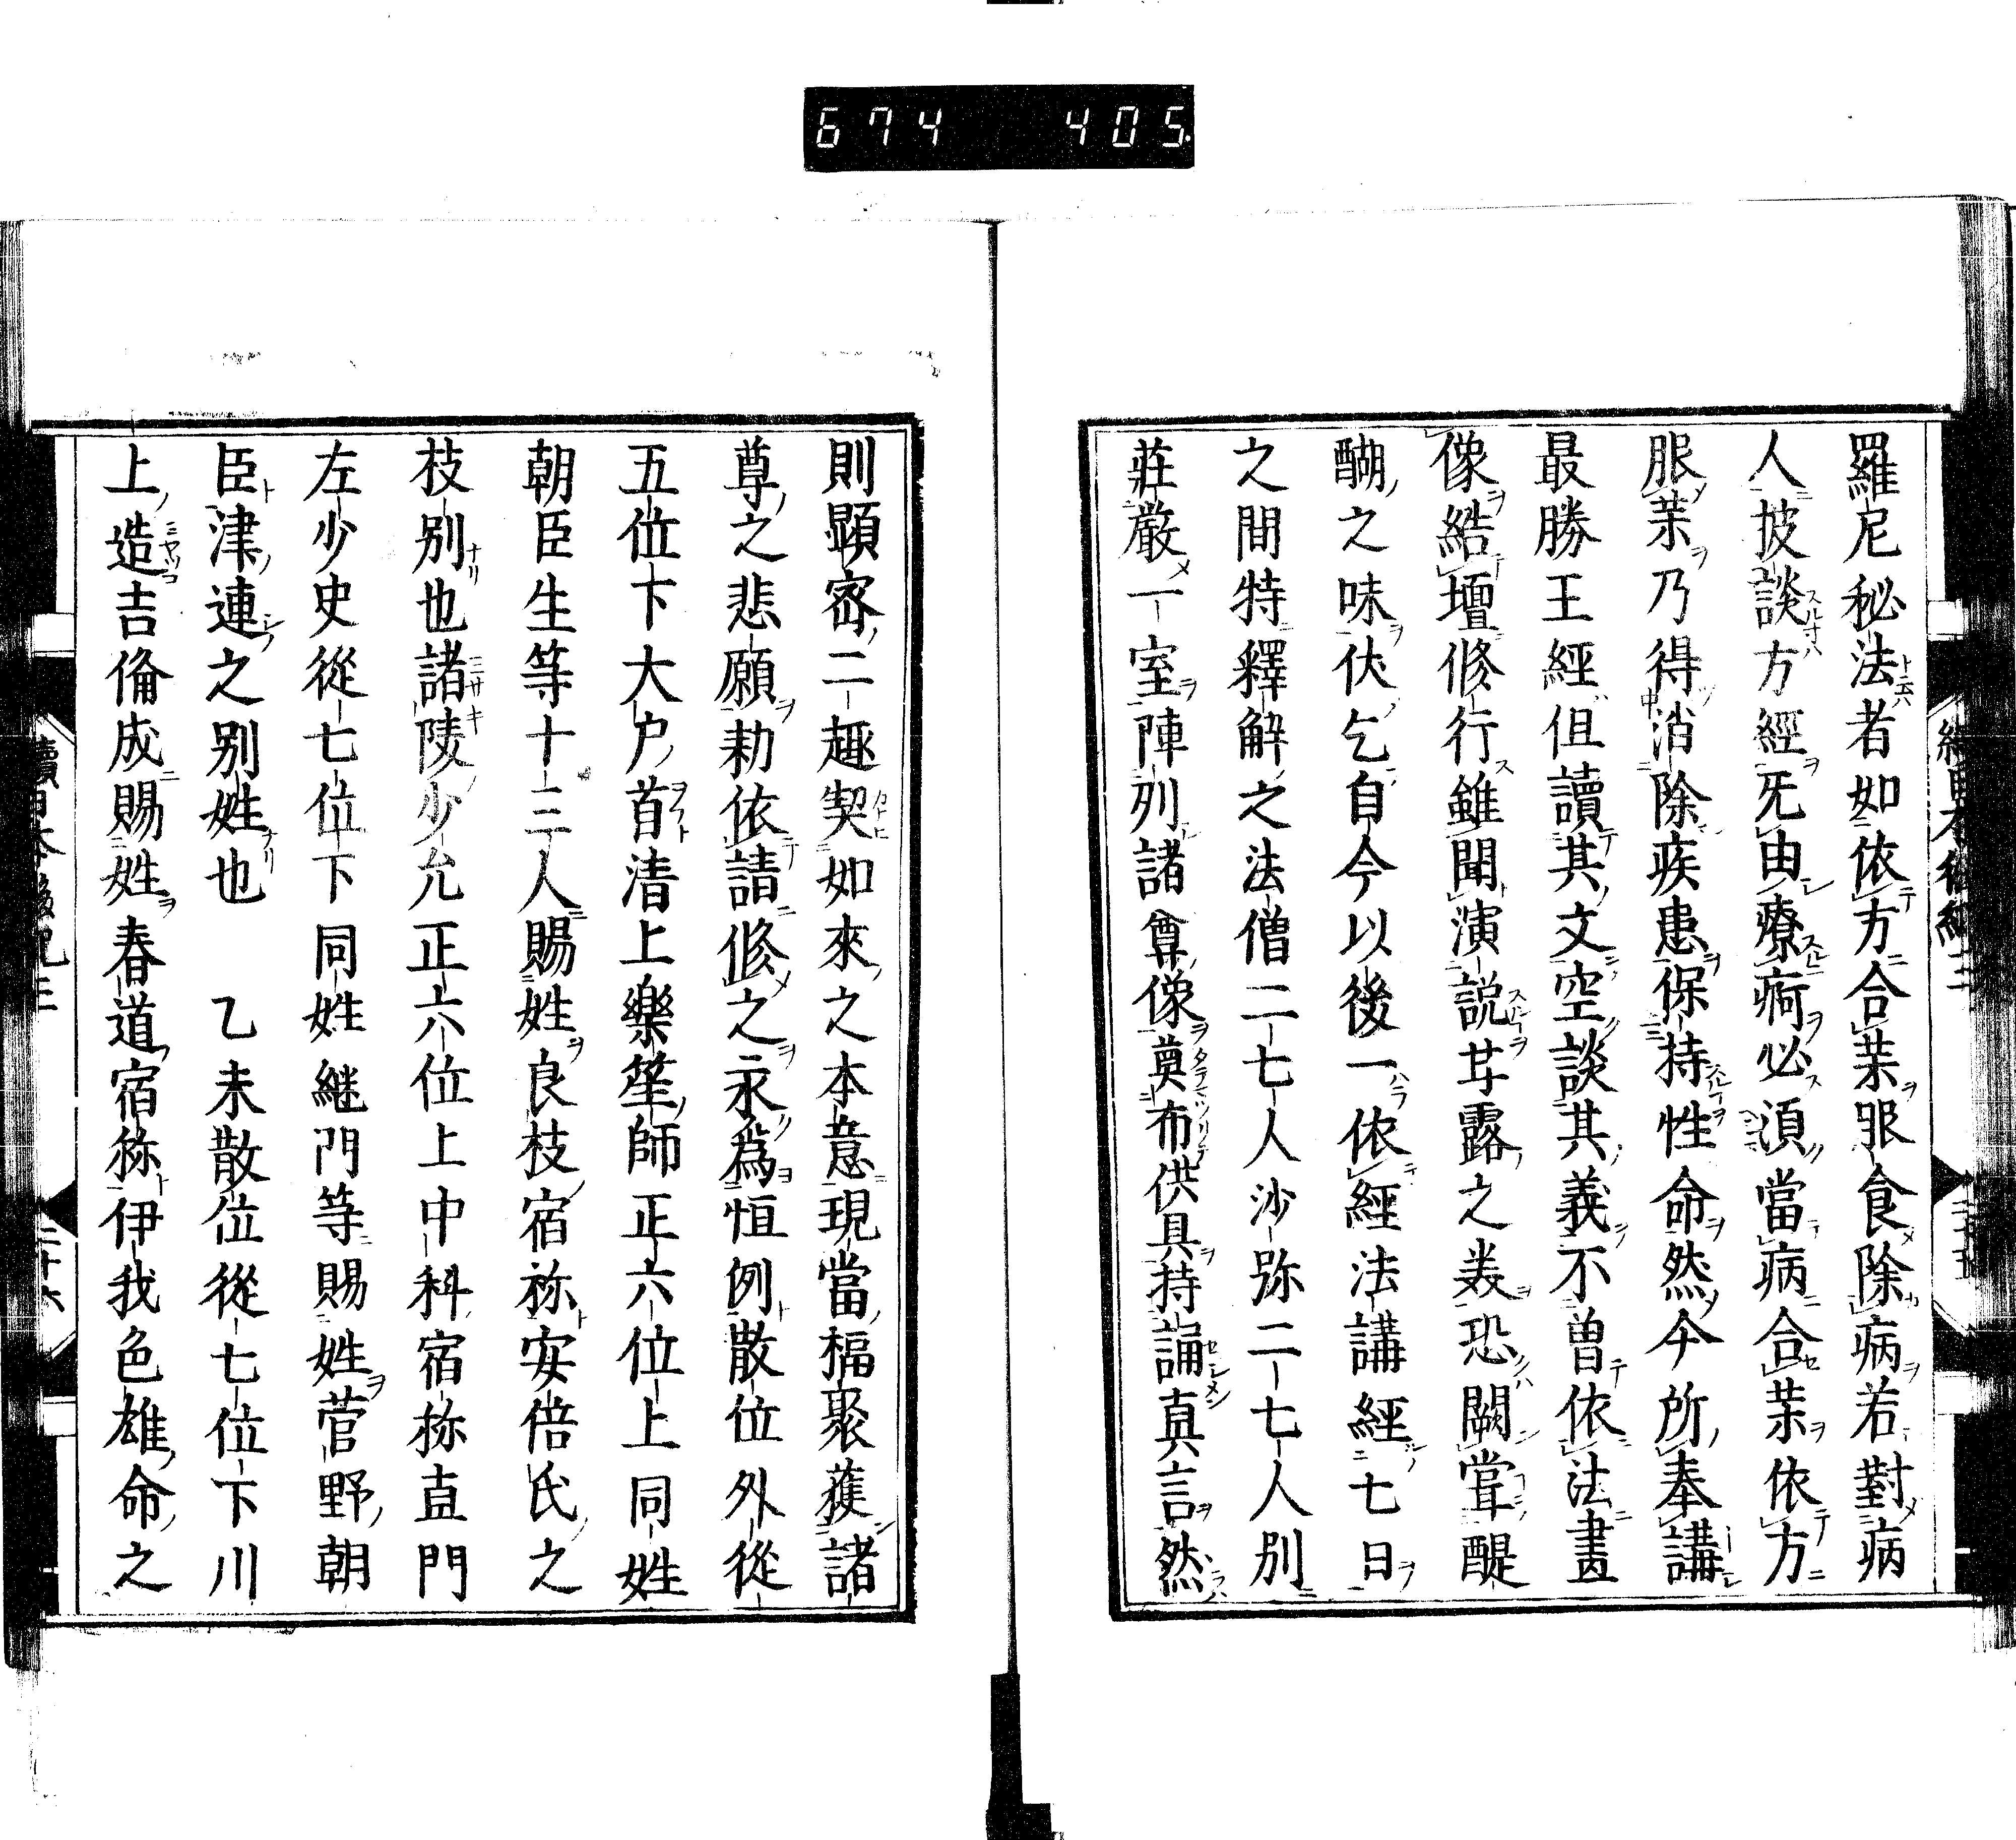 674 405
羅尼秘法者如依方合藥服食除病若對病
人披談方經无由療痾必須當病合藥依方
服藥乃得消除疾患保持性命然今所奉講
最勝王經但讀其文空談其義不曽依法畫
像結壇修行雖聞演説甘露之美恐闕甞醍
醐之味伏乞自今以後一依經法講經七日
之間特釋解之法僧二七人沙弥二七人別
莊厳一室陣列諸尊像奠布供具持誦真言然
則顕密二趣契如來之本意現當福聚獲諸
尊之悲願勅依請修之永爲恒例散位外從
五位下大戸首清上樂笙師正六位上同姓
朝臣生等十三人賜姓良枝宿祢安倍氏之
枝別也諸陵少允正六位上中科宿祢直門
左少史從七位下同姓継門等賜姓菅野朝
臣津連之別姓也　乙未散位從七位下川
上造吉備成賜姓春道宿祢伊我色雄命之